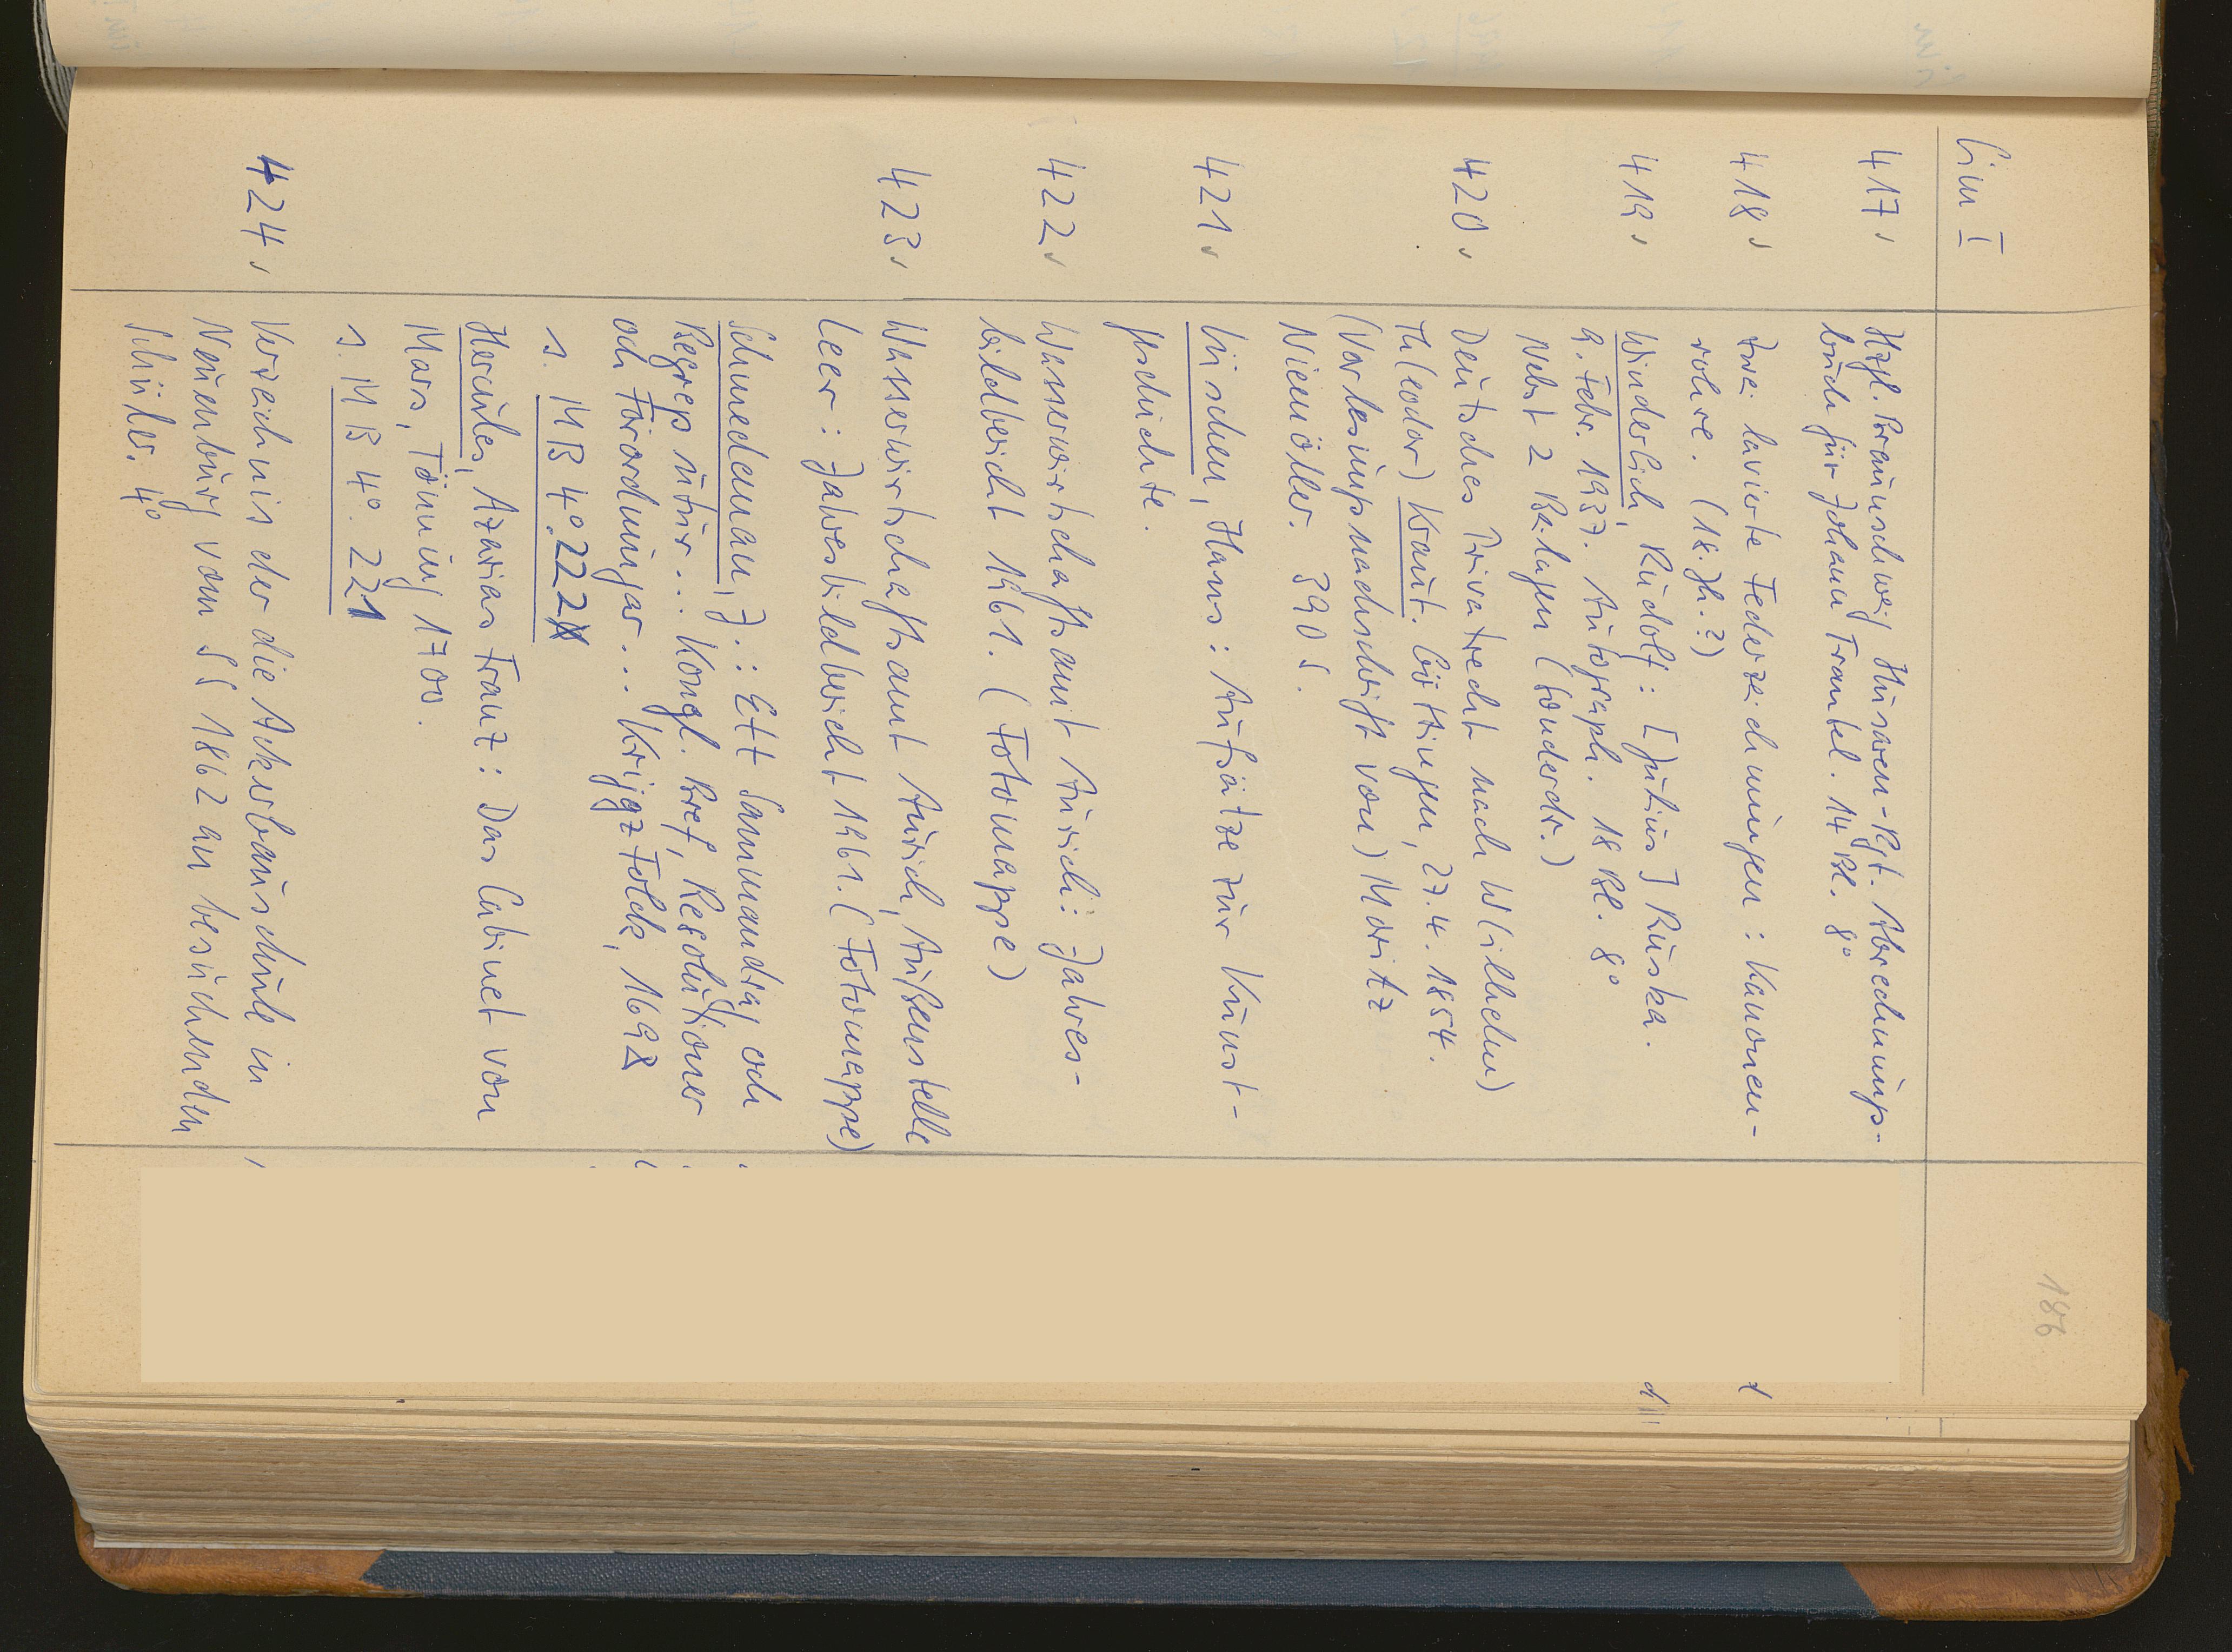 186
Cim I
417 Hzgl. Braunschweig Husaren-Rgt. Abrechnungs-
buch für Johann Trantel. 14 Bl. 8°
418 Zwei lavierte Federzeichnungen: Kanonen-
rohre. (18. Jh.?)
419 Winderlich, Rudolf: [Julius] Ruska.
9. Febr. 1937. Autograph. 18 Bl. 8°
Nebst 2 Beilagen (Sonderdr.)
420 Deutsches Privatrecht nach W(ilhelm)
Th(eodor) Kraut. Göttingen, 27.4.1854.
(Vorlesungsnachschrift von) Moritz
Niemöller. 390 S.
421 Hans: Aufsätze zur Kunst-
geschichte.
422 Wasserwirtschaftsamt Aurich: Jahres-
bildbericht 1961. (Fotomappe)
423 Wasserwirtschaftsamt Aurich, Außenstelle
Leer: Jahresbildbericht 1961. (Fotomappe)
Schmedeman, J.: Ett Sammandrag och
Begrep utur... Kongl. Bref, Resolutioner
och Förordningar... Krijgz Folck, 1692
s. MB 4°. 222
Hercules, Azarias Franz: Das Cabinet von
Mars, Tönning 1700.
s. MB 4°. 221
424 Verzeichnis der die Ackerbauschule in
Neuenburg vom SS 1862 an besuchenden
Schüler. 4°